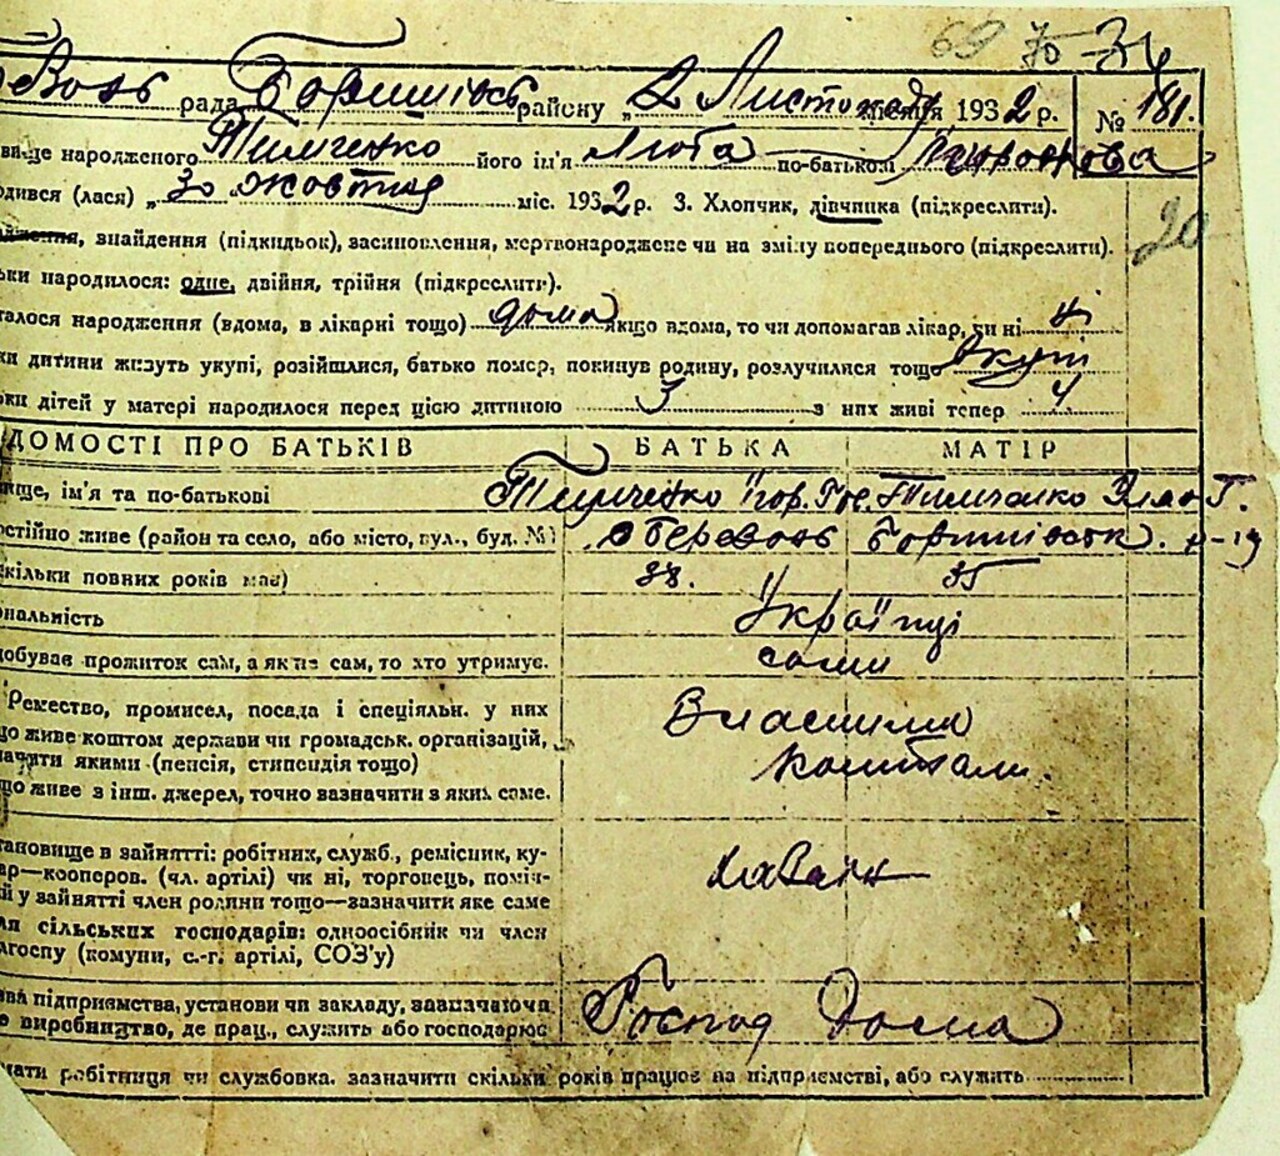 69 70 34
рада районy „2 Листопаду місяця 1932 р. № 181.
вище народженого Тимченко його ім'я Люба по-батькові
одився (лася) „30 жовтня міс. 1932 р. 3. Хлопчик, дівчинка (підкреслити).
20
, знайдення (підкидьок), засиновлення, мертвонароджене чи на зміну попереднього (підкреслити).
ьки народилося: одне, двійня, трійня (підкреслити).
талося народження (вдома, в лікарні тощо) дома якщо вдома, то чи допомагав лікар, чи ні ні
ки дитини живуть укупі, розійшлися, батько помер, покинув родину, розлучилися тощо вкупі
ьки дітей у матері народилося перед цією дитиною 3 з них живі тепер 4
ДОМОСТІ ПРО БАТЬКІВ БАТЬКА МАТІР
ище, ім'я та по-батькові Тимченко Тимченко Г.
остійно живе (район та село, або місто, вул., буд. №) с Березонь р-ну
скільки повних років має) 38. 35
ональність Українці
добував прожиток сам, а як не сам, то хто утримує. сами
Ремество, промисел, посада і спеціяльн. у них Власними
що живе коштом держави чи громадськ. організацій,
начити якими (пенсія, стипендія тощо) коштами.
що живе з інш. джерел, точно зазначити з яких саме.
тановище в зайнятті: робітник, служб., ремісник, ку-
ар—кооперов. (чл. артілі) чи ні, торговець, поміч-
й у зайнятті член родини тощо—зазначити яке саме
ля сільських господарів: одноосібник чи член
лгоспу (комуни, с.-г. артілі, СОЗ'у)
ва підприємства, установи чи закладу, зазначаюча
е виробництво, де прац., служить або господарює Господ Дома
мати робітниця чи службовка. зазначити скільки років працює на підприємстві, або служить